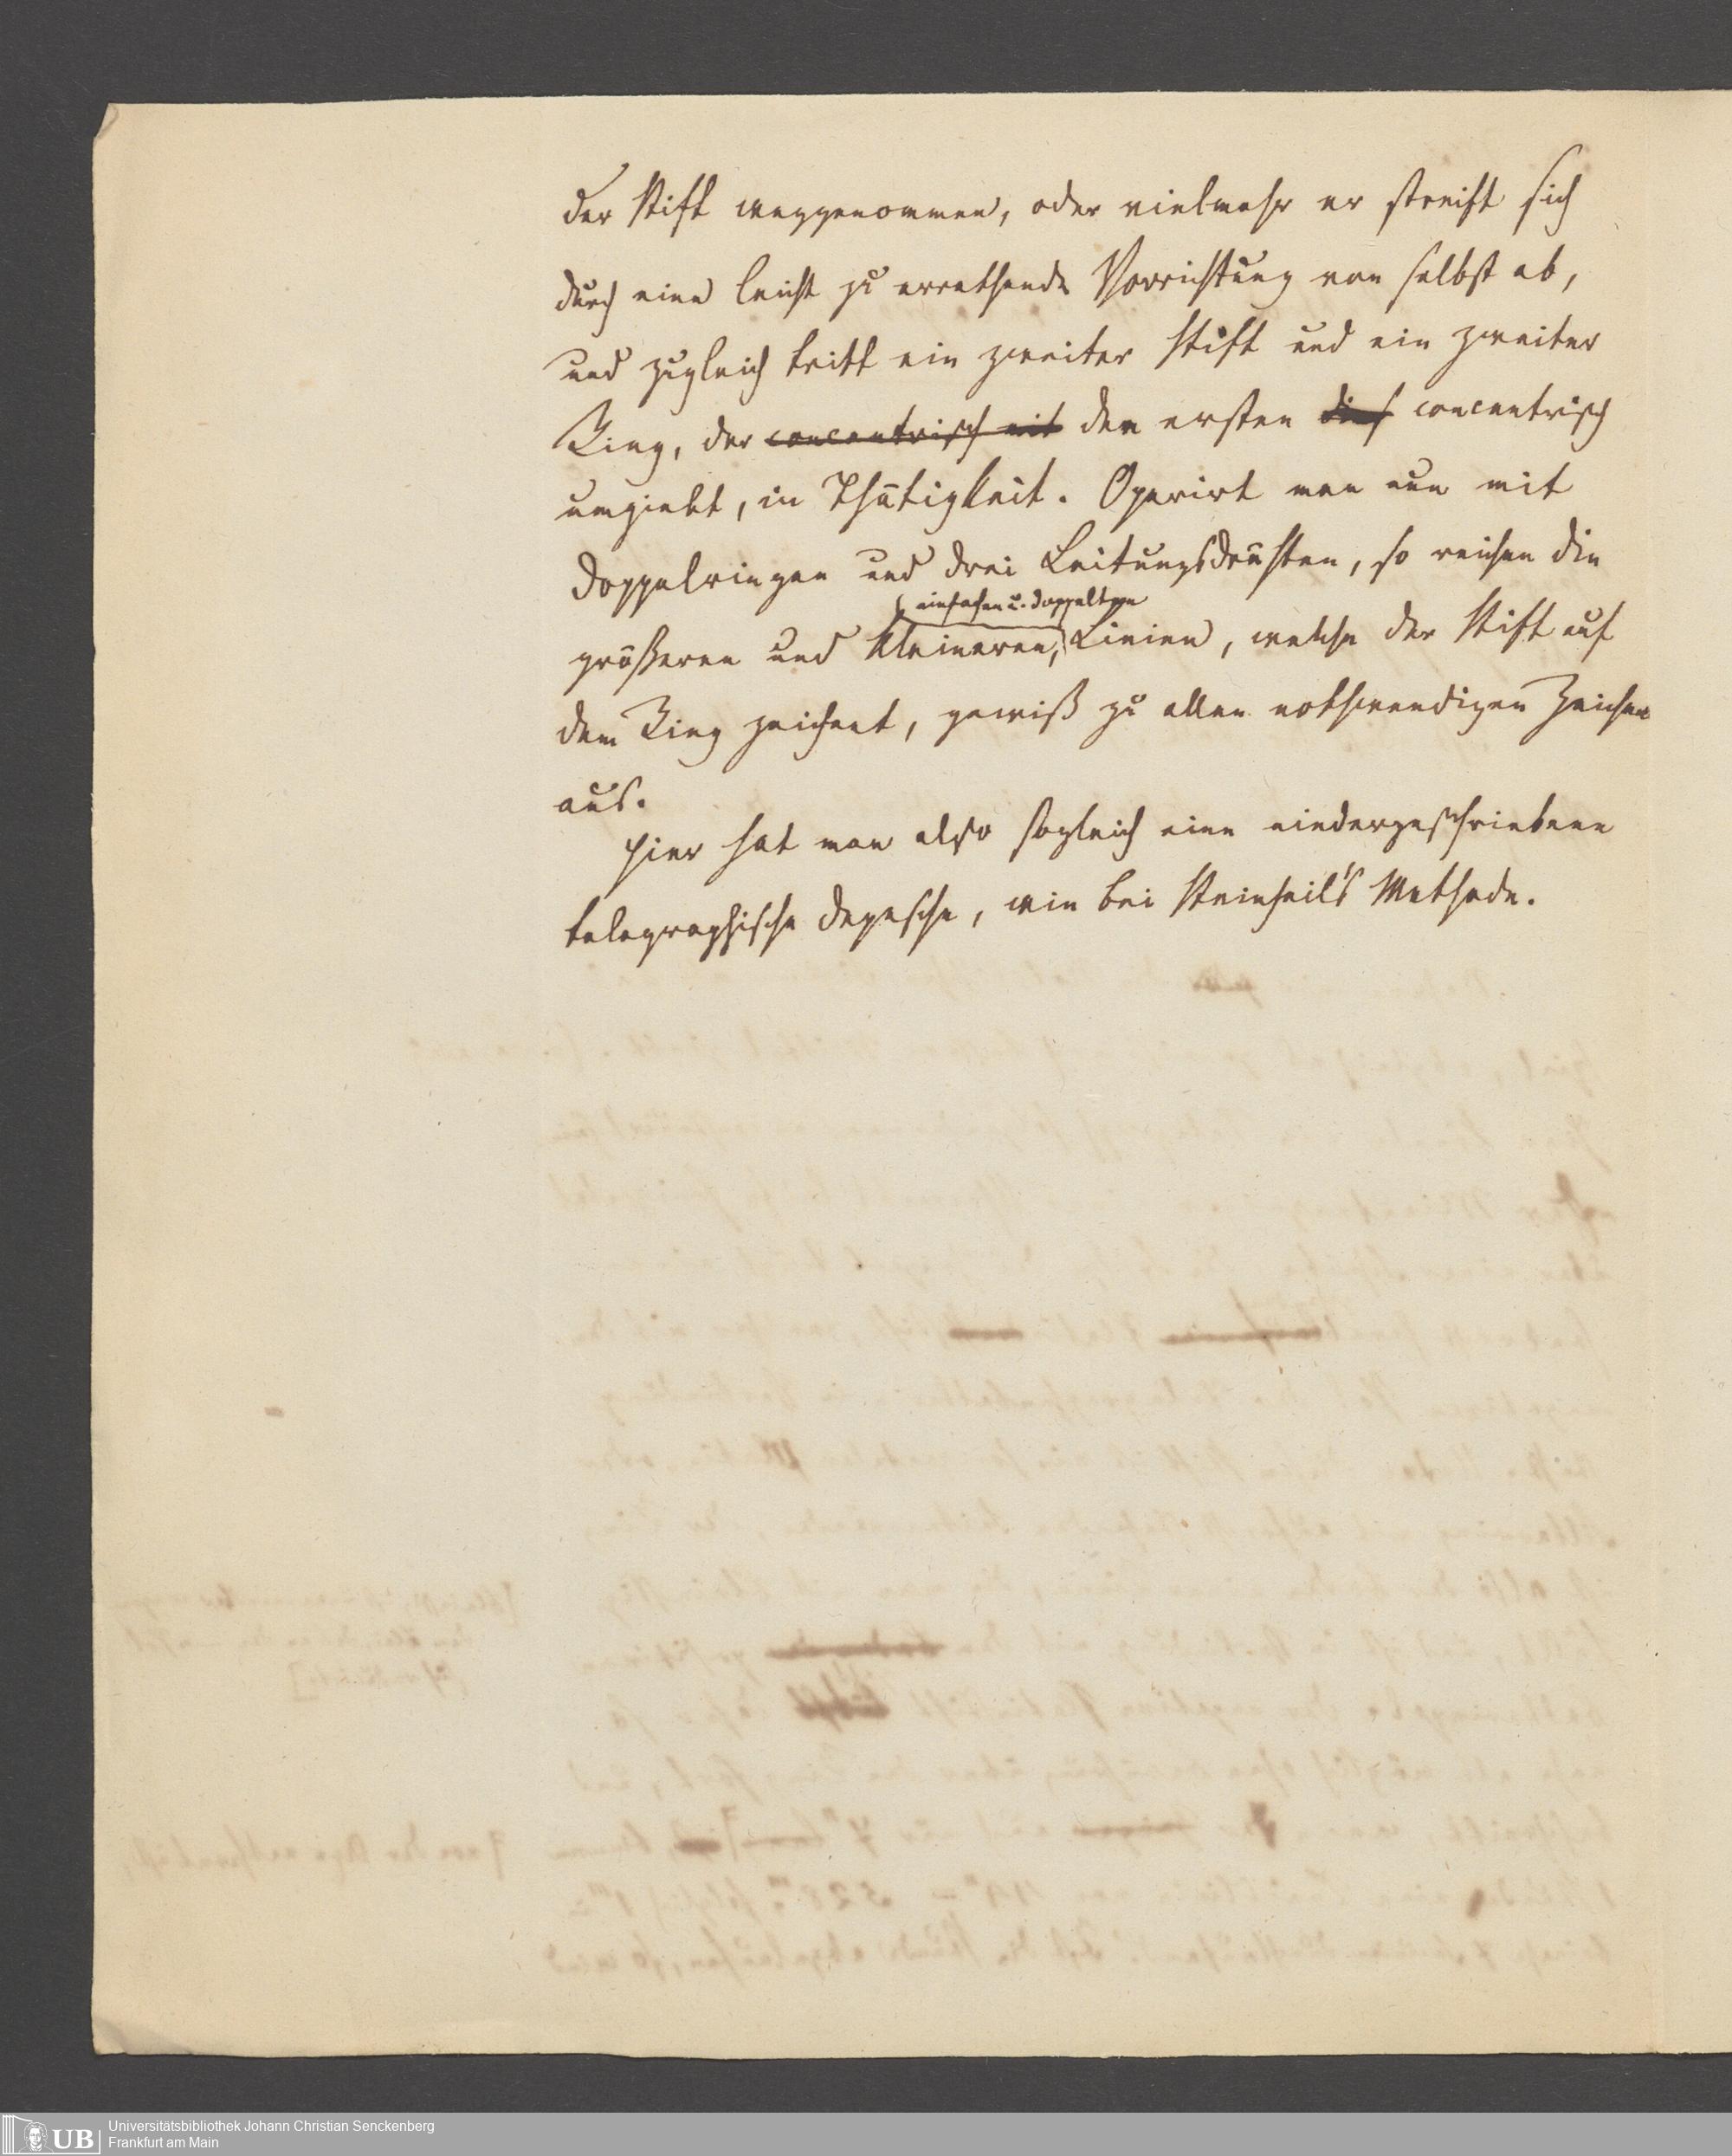 der Stift weggenommen, oder vielmehr er streift sich
durch eine leicht zu errathende Vorrichtung von selbst ab,
und zugleich tritt ein zweiter Stift und ein zweiter
Ring, der concentrisch mit den ersten concentrisch
umgiebt, in Thätigkeit. Operirt man nun mit
Doppelringen und drei Leitungsdrähten, so reichen die
einfachen u. doppelten
größeren und kleineren, Linien, welche der Stift auf
dem Ring zeichnet, gewiß zu allen nothwendigen Zeichen
aus.
Hier hat man also sogleich eine niedergeschriebene
telegraphische Depesche, wie bei Steinheil's Methode.
UB
Universitätsbibliothek Johann Christian Senckenberg
Frankfurt am Main